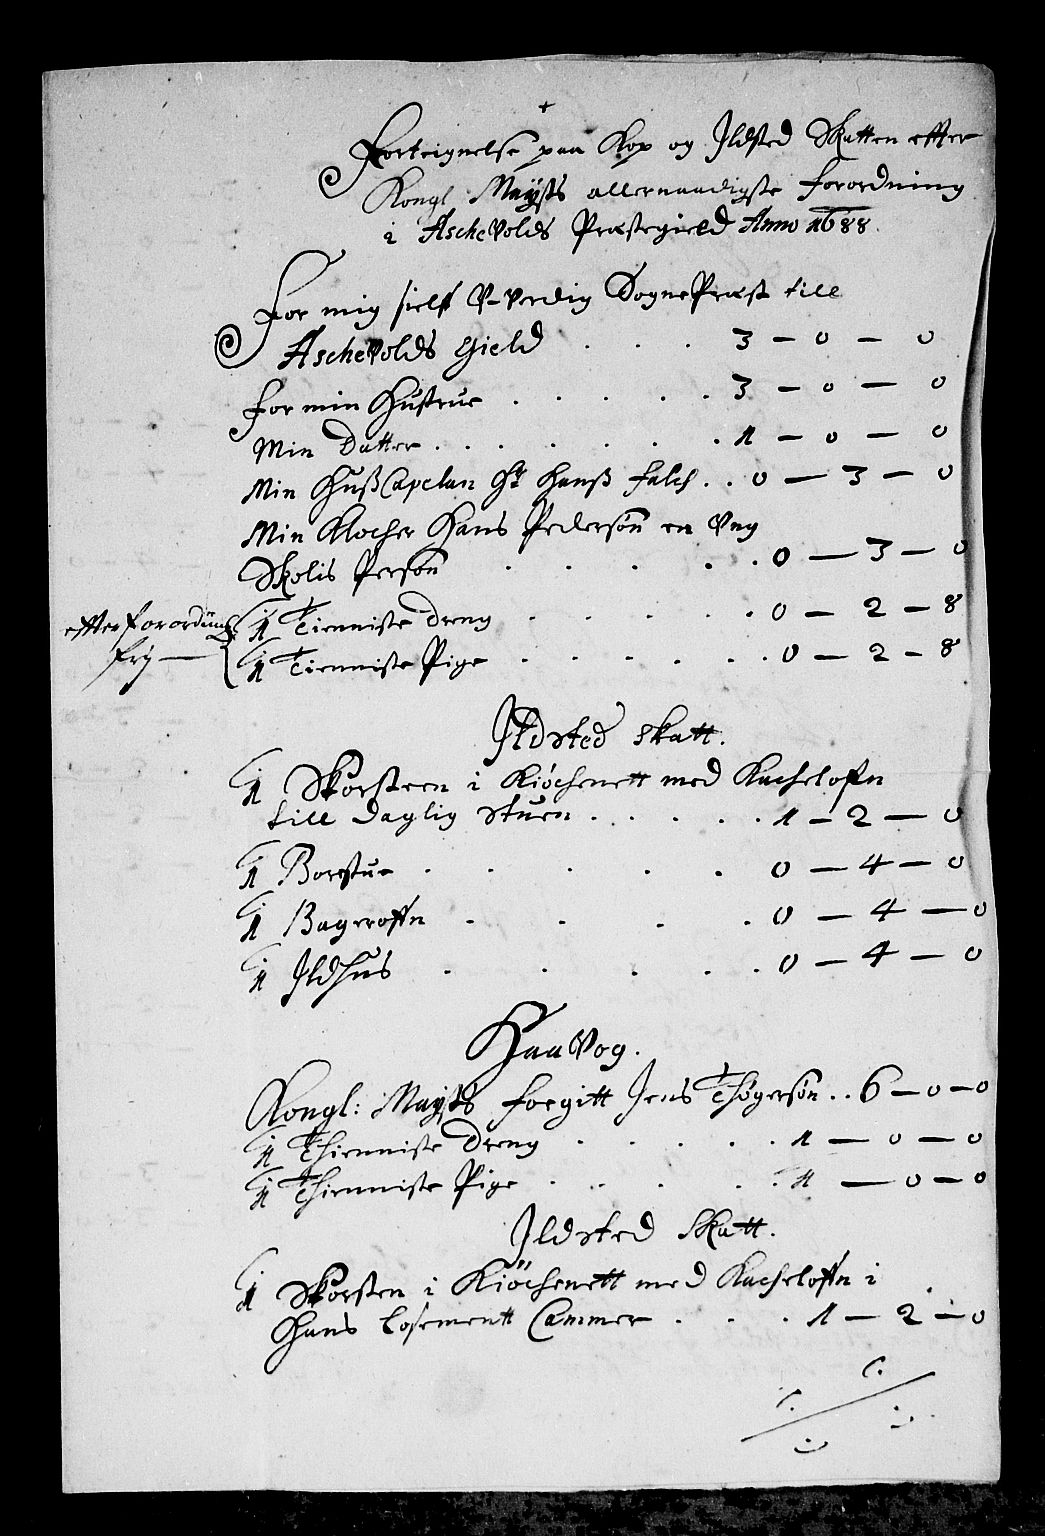 Forteignelse paa Kop og Ildsted Skatten effter
Kongl Mayßts allernaadigste forordning
i Aschevolds Præstegield Anno 1688.
For mig sielff V-verdig SognePræst till
Aschevolds gield . . . 3 — 0 — 0
for min Hustrue . . . . . 3 — 0 — 0
Min Datter . . . . . . . 1 — 0 — 0
Min HußCapelan Hr Hanß falch . . 0 — 3 — 0
Min Klocher Hans Pedersøn en Vng
Skolis Persøn . . . . . 0 — 3 — 0
1 Tienniste Dreng . . . . . 0 — 2 — 8
effter forordning
fry — 1 Tienniste Pige . . . . . . 0 — 2 — 8
Ildsted skatt.
1 Skorsteen i Kiøchenett med Kachelofn
till daglig stuen . . . . . . 1 — 2 — 0
1 Borestue . . . . . 0 — 4 — 0
1 Bageroffn . . . . 0 — 4 — 0
1 Ildhus . . . . . 0 — 4 — 0
Haavog.
Kongl: Mayßts foegitt Jens Thøgersøn . . 6 — 0 — 0
1 Thienniste Dreng . . . . . 1 — 0 — 0
1 Thienniste Pige . . . . . 1 — 0 — 0
Ildsted Skatt.
1 Skorsten i Kiøchenett med Kacheloffn i
Hans Losementt Cammer . . . 1 — 2 — 0